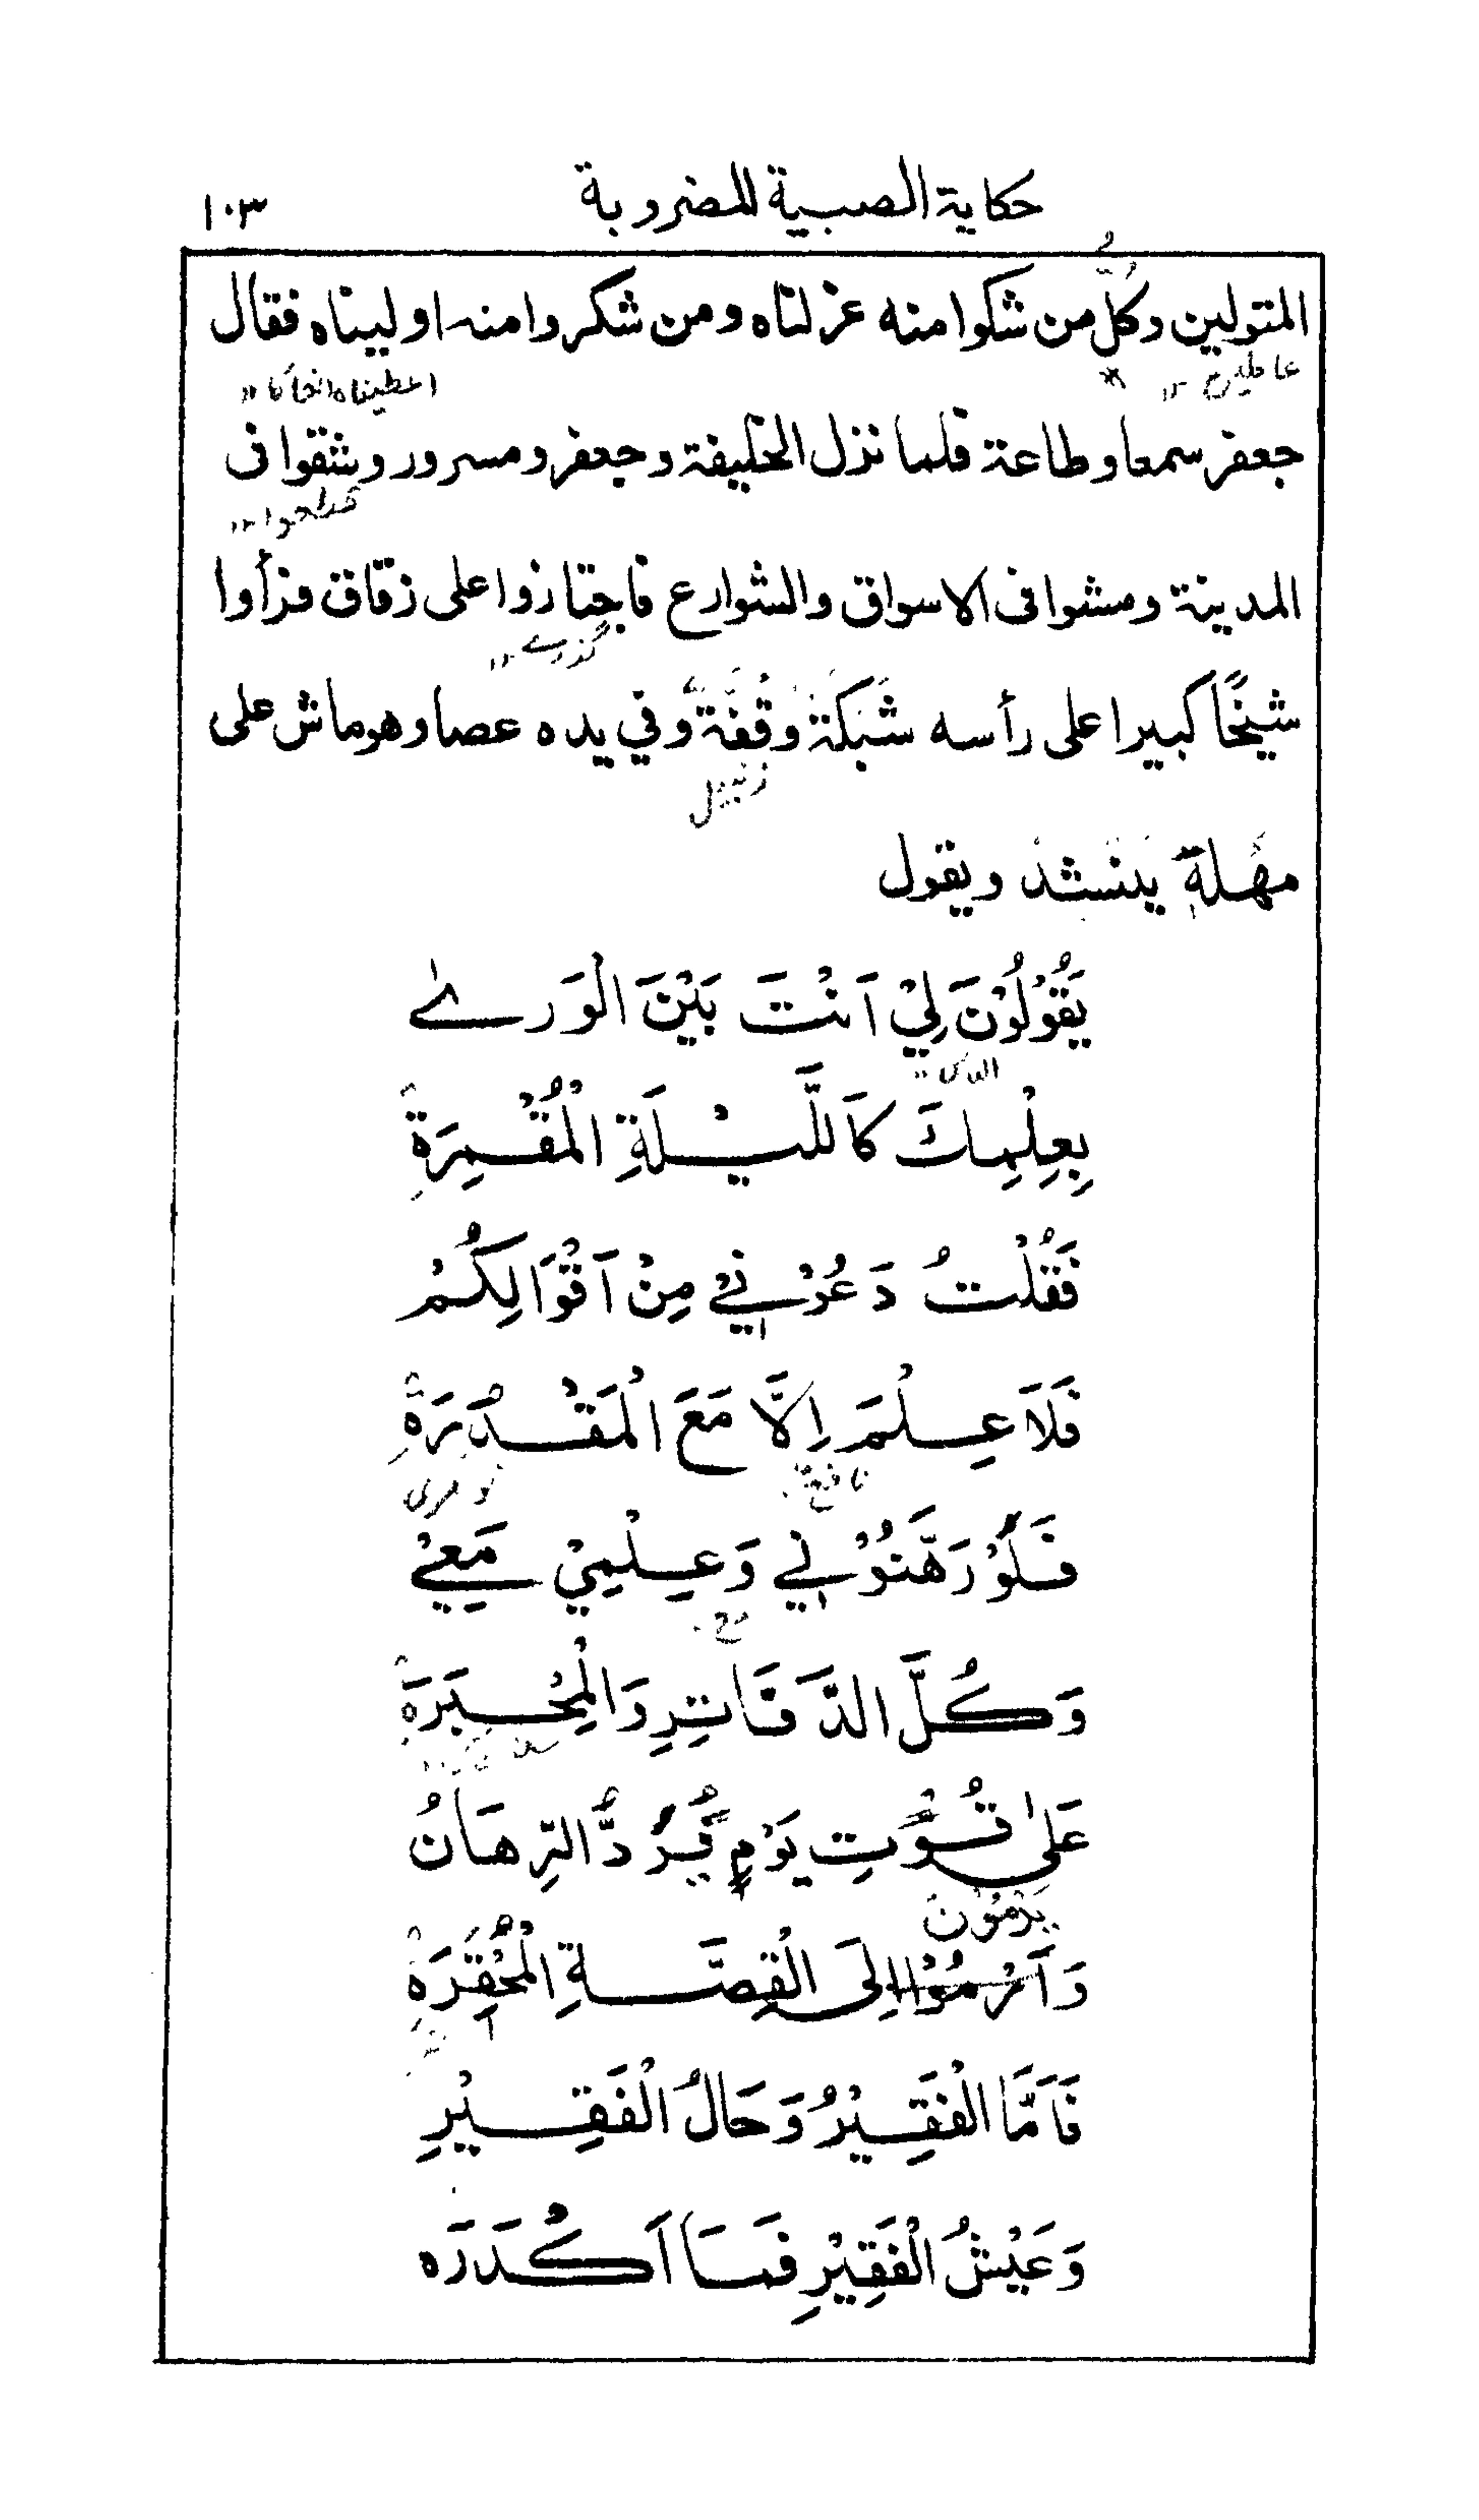 حكاية الصبية المضروبة
١٠٣
المتولين وكُلُّ من شكوا منه عزلناه ومن شكروا منه اوليناه فقال
جعفر سمعا وطاعة فلما نزل الخليفة وجعفر ومسرور وشقوا فى
المدينة ومشوا فى الاسواق والشوارع فاجتازوا على زقاق فرأوا
گزرے
شيخًا كبيرا على رأسه شَبَكَة وقُفَّةٌ وفي يده عصا وهو ماش على
زنبيل
مهْلَةٍ ينشد ويقول
يَقُوْلُوْنَ لِيْ اَنْتَ بَيْنَ الْوَرےٰ
بِعِلْمِكَ كَاَللَّيْلَةِ الْمُقْمِرَةِ
فَقُلْتُ دَعُوْنِيْ مِنْ اَقْوَالِكُمْ
فَلَاَ عِلْمَ اِلَّا مَعَ الْمَقْدُرَةِ
فَلَوْ رَهَّنُوْنِي وَعِلْمِيْ مَعِيْ
وَكُلَّ الدَّفَاتِرِ وَالْمِحْبَرَةِ
عَلىٰ قُوْتِ يَوْمٍ يُرَدُّ الرِّهَانُ
يَرْمُوْنَ
وَاَرْمُوْا اِلَى الْقِصَّةِ الْمُحْقِرَةِ
فَاَمَّا الْفَقِيْرُ وَحَالُ الْفَقِيْرِ
وَعَيْشُ الْفَقِيْرِ فَمَا اَكْدَرَه